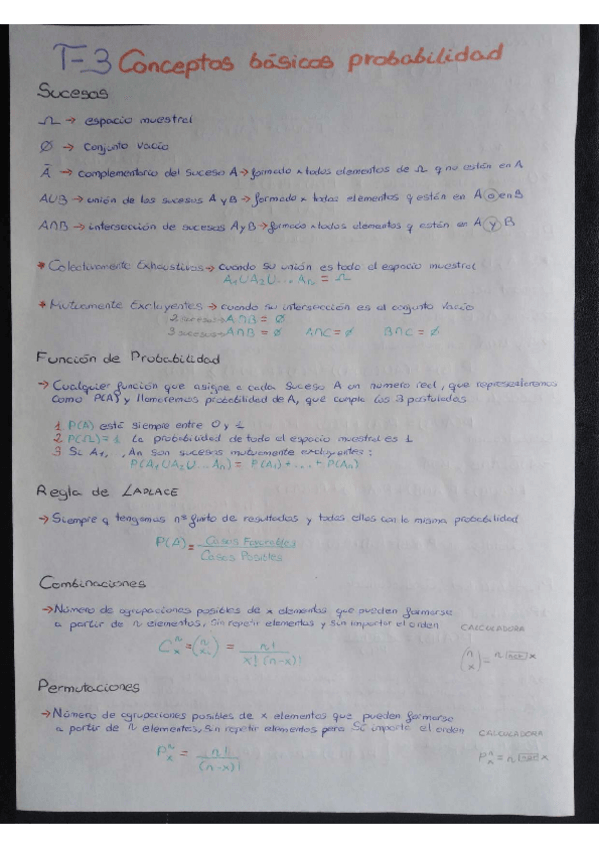 T-3 Conceptos básicos probabilidad
Sucesos
Ω → espacio muestral
Ø → Conjunto vacío
Ā → complementario del suceso A → formado x todos elementos de Ω q no están en A
A∪B → unión de los sucesos A y B → formado x todos elementos q estén en A o en B
A∩B → intersección de sucesos A y B → formado x todos elementos q están en A y B
* Colectivamente Exhaustivos → Cuando su unión es todo el espacio muestral
A₁∪A₂∪... Aₙ = Ω
* Mutuamente Excluyentes → cuando su intersección es el conjunto vacío
2 sucesos A∩B = Ø
3 sucesos A∩B = Ø A∩C = Ø B∩C = Ø
Función de Probabilidad
→ Cualquier función que asigne a cada suceso A un número real, que representaremos
como P(A) y llamaremos probabilidad de A, que cumple los 3 postulados
1 P(A) está siempre entre 0 y 1
2 P(Ω) = 1 la probabilidad de todo el espacio muestral es 1
3 Si A₁, , Aₙ son sucesos mutuamente excluyentes:
P(A₁∪A₂∪...Aₙ) = P(A₁) + ... + P(Aₙ)
Regla de LAPLACE
→ Siempre q tengamos nº finito de resultados y todos ellos con la misma probabilidad
P(A) = Casos Favorables
Casos Posibles
Combinaciones
→ Número de agrupaciones posibles de x elementos que pueden formarse
a partir de n elementos, sin repetir elementos y sin importar el orden
CALCULADORA
C n x = (n x) = n! / x! (n-x)!
(n x) = n x
Permutaciones
→ Número de agrupaciones posibles de x elementos que pueden formarse
a partir de n elementos, sin repetir elementos pero SÍ importa el orden
CALCULADORA
P n x = n! / (n-x)!
P n = n x